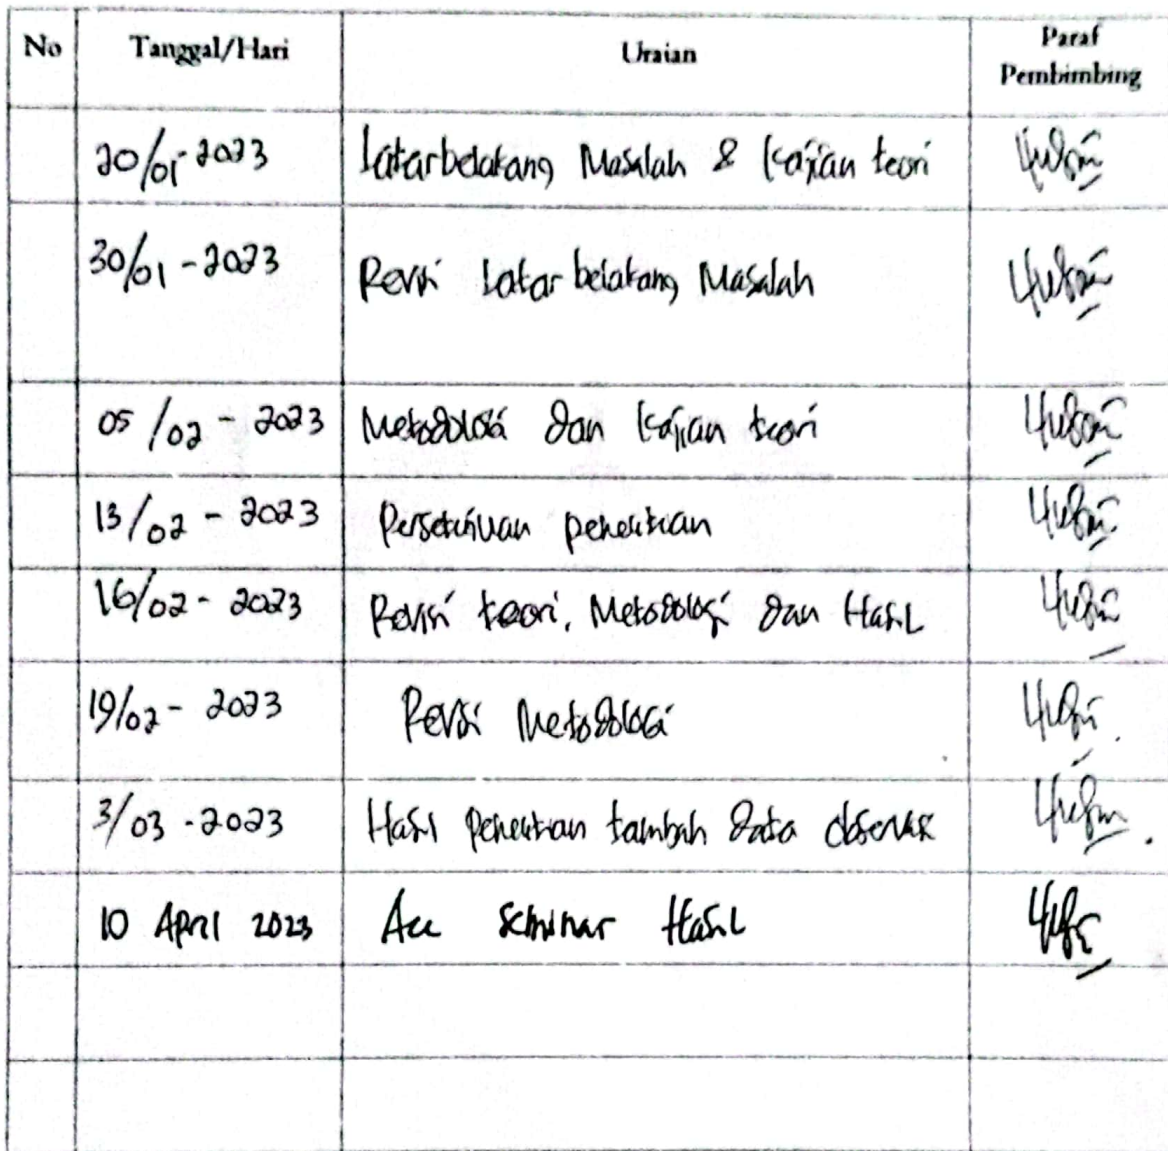 No Tanggal/Hari Uraian Paraf Pembimbing
20/01-2023 Latarbelakang Masalah & Kajian teori
30/01-2023 Revisi Latar belakang Masalah
05/02-2023 Metodologi dan Kajian teori
13/02-2023 Persetujuan penelitian
16/02-2023 Revisi teori, Metodologi dan Hasil
19/02-2023 Revisi Metodologi
3/03-2023 Hasil penelitian tambah data observasi
10 April 2023 Acc Seminar Hasil